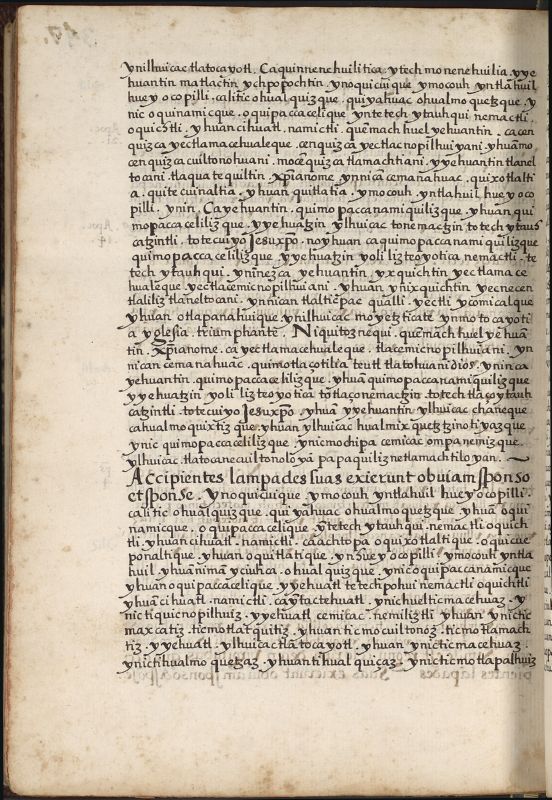 ynilhuicac tlatocayotl. Ca quinnenehuilitica. ytech monenehuilia. yye
huantin matlactin ychpopochtin. ynoquicuique. ymocouh. yntlahuil
hue yocopilli. calitic ohualquizque. quiyahuac ohualmoquetzque. y
nic oquinamicque. oquipaccacelique. yntetech ytauhqui nemactli.
oquichtli. yhuan cihuatl. namictli. quenmach huel yehuantin. ca cen
quizca yectlamacehualeque. cenquizca yectlacnopilhuiyani. yhuã mo
cenquizca cuiltonohuani. mocẽquizca tlamachtiani. yyehuantin tlanel
tocani. tlaquatequiltin. xp̃ianome. ynnicã cemanahuac. quixotlalti
a. quitecuinaltia. yhuan quitlatia. ymocouh. yntlahuil hue yoco
pilli. ynin. Ca yehuantin. quimopaccanamiquilizque. yhuan qui
mopaccacelilizque. yyehuatzin ylhuicac tonemactzin totech ytauh
catzintli. totecuiyo Jesuxp̃o. noyhuan ca quimopaccanamiquilizque
quimopaccacelilizque. yyehuatzin yolilizteoyotica nemactli. te
tech ytauhqui. yninezca yehuantin. yxquichtin yectlamace
hualeque yectlacemicnopilhuiani. yhuan ynixquichtin yecnecen
tlaliliztlaneltocani. ynnican tlalticpac qualli. yectli ycõmicalque
yhuan otlapanahuique. ynilhuicac moyetzticate ynmotocayoti
a yglesia. triumphante. Niquitoznequi. quenmach huel yehuã
tin. xp̃ianome. ca yectlamacehualeque. tlacemicnopilhuiani. yn
nican cemanahuac. quimotlaçotilia teutl tlatohuani dios. ynin ca
yehuantin. quimopaccacelilizque. yhuã quimopaccanamiquilizque
yyehuatzin yolilizteoyotica totlaçonemactzin. totech tlaçoytauh
catzintli. totecuiyo Jesuxp̃o. yhuã yyehuantin ylhuicac chaneque
ca hualmoquixtizque. yhuan ylhuicac hualmixquetzzinotiyazque
ynic quimopaccacelilizque. ynicmochipa cemicac ompa nemizque.
ylhuicac tlatocanecuiltonoloyã papaquiliznetlamachtiloyan.
Accipientes lampades suas exierunt obuiam sponso
et sponse. ynoquicuique ymocouh yntlahuil hue yocopilli.
calitic ohualquizque. quiyahuac ohualmoquetzque. yhuã oqui
namicque. oquipaccacelique. ytetech ytauhqui. nemactli oquich
tli. yhuan cihuatl. namictli. ca achtopa oquixotlaltique. oquicue
ponaltique. yhuan oquitlatique. yn hue yocopilli. ymocouh yntla
huil. yhuã nimã yciuhca. ohualquizque. ynic oquipaccanamicque
yhuan oquipaccacelique. yyehuatl tetechpohui nemactli oquichtli
yhuã cihuatl. namictli. caytactehuatl. ynic huel ticmacehuaz. y
nic tiquicnopilhuiz. yyehuatl cemicac. nemiliztli yhuan ynictic
maxcatiz. ticmotlatquitiz. yhuan ticmocuiltonoz. ticmotlamach
tiz. yyehuatl ylhuicac tlatocayotl. yhuan ynicticmacehuaz.
ynictihualmoquetzaz. yhuan tihualquiçaz. ynicticmotlapalhuiz